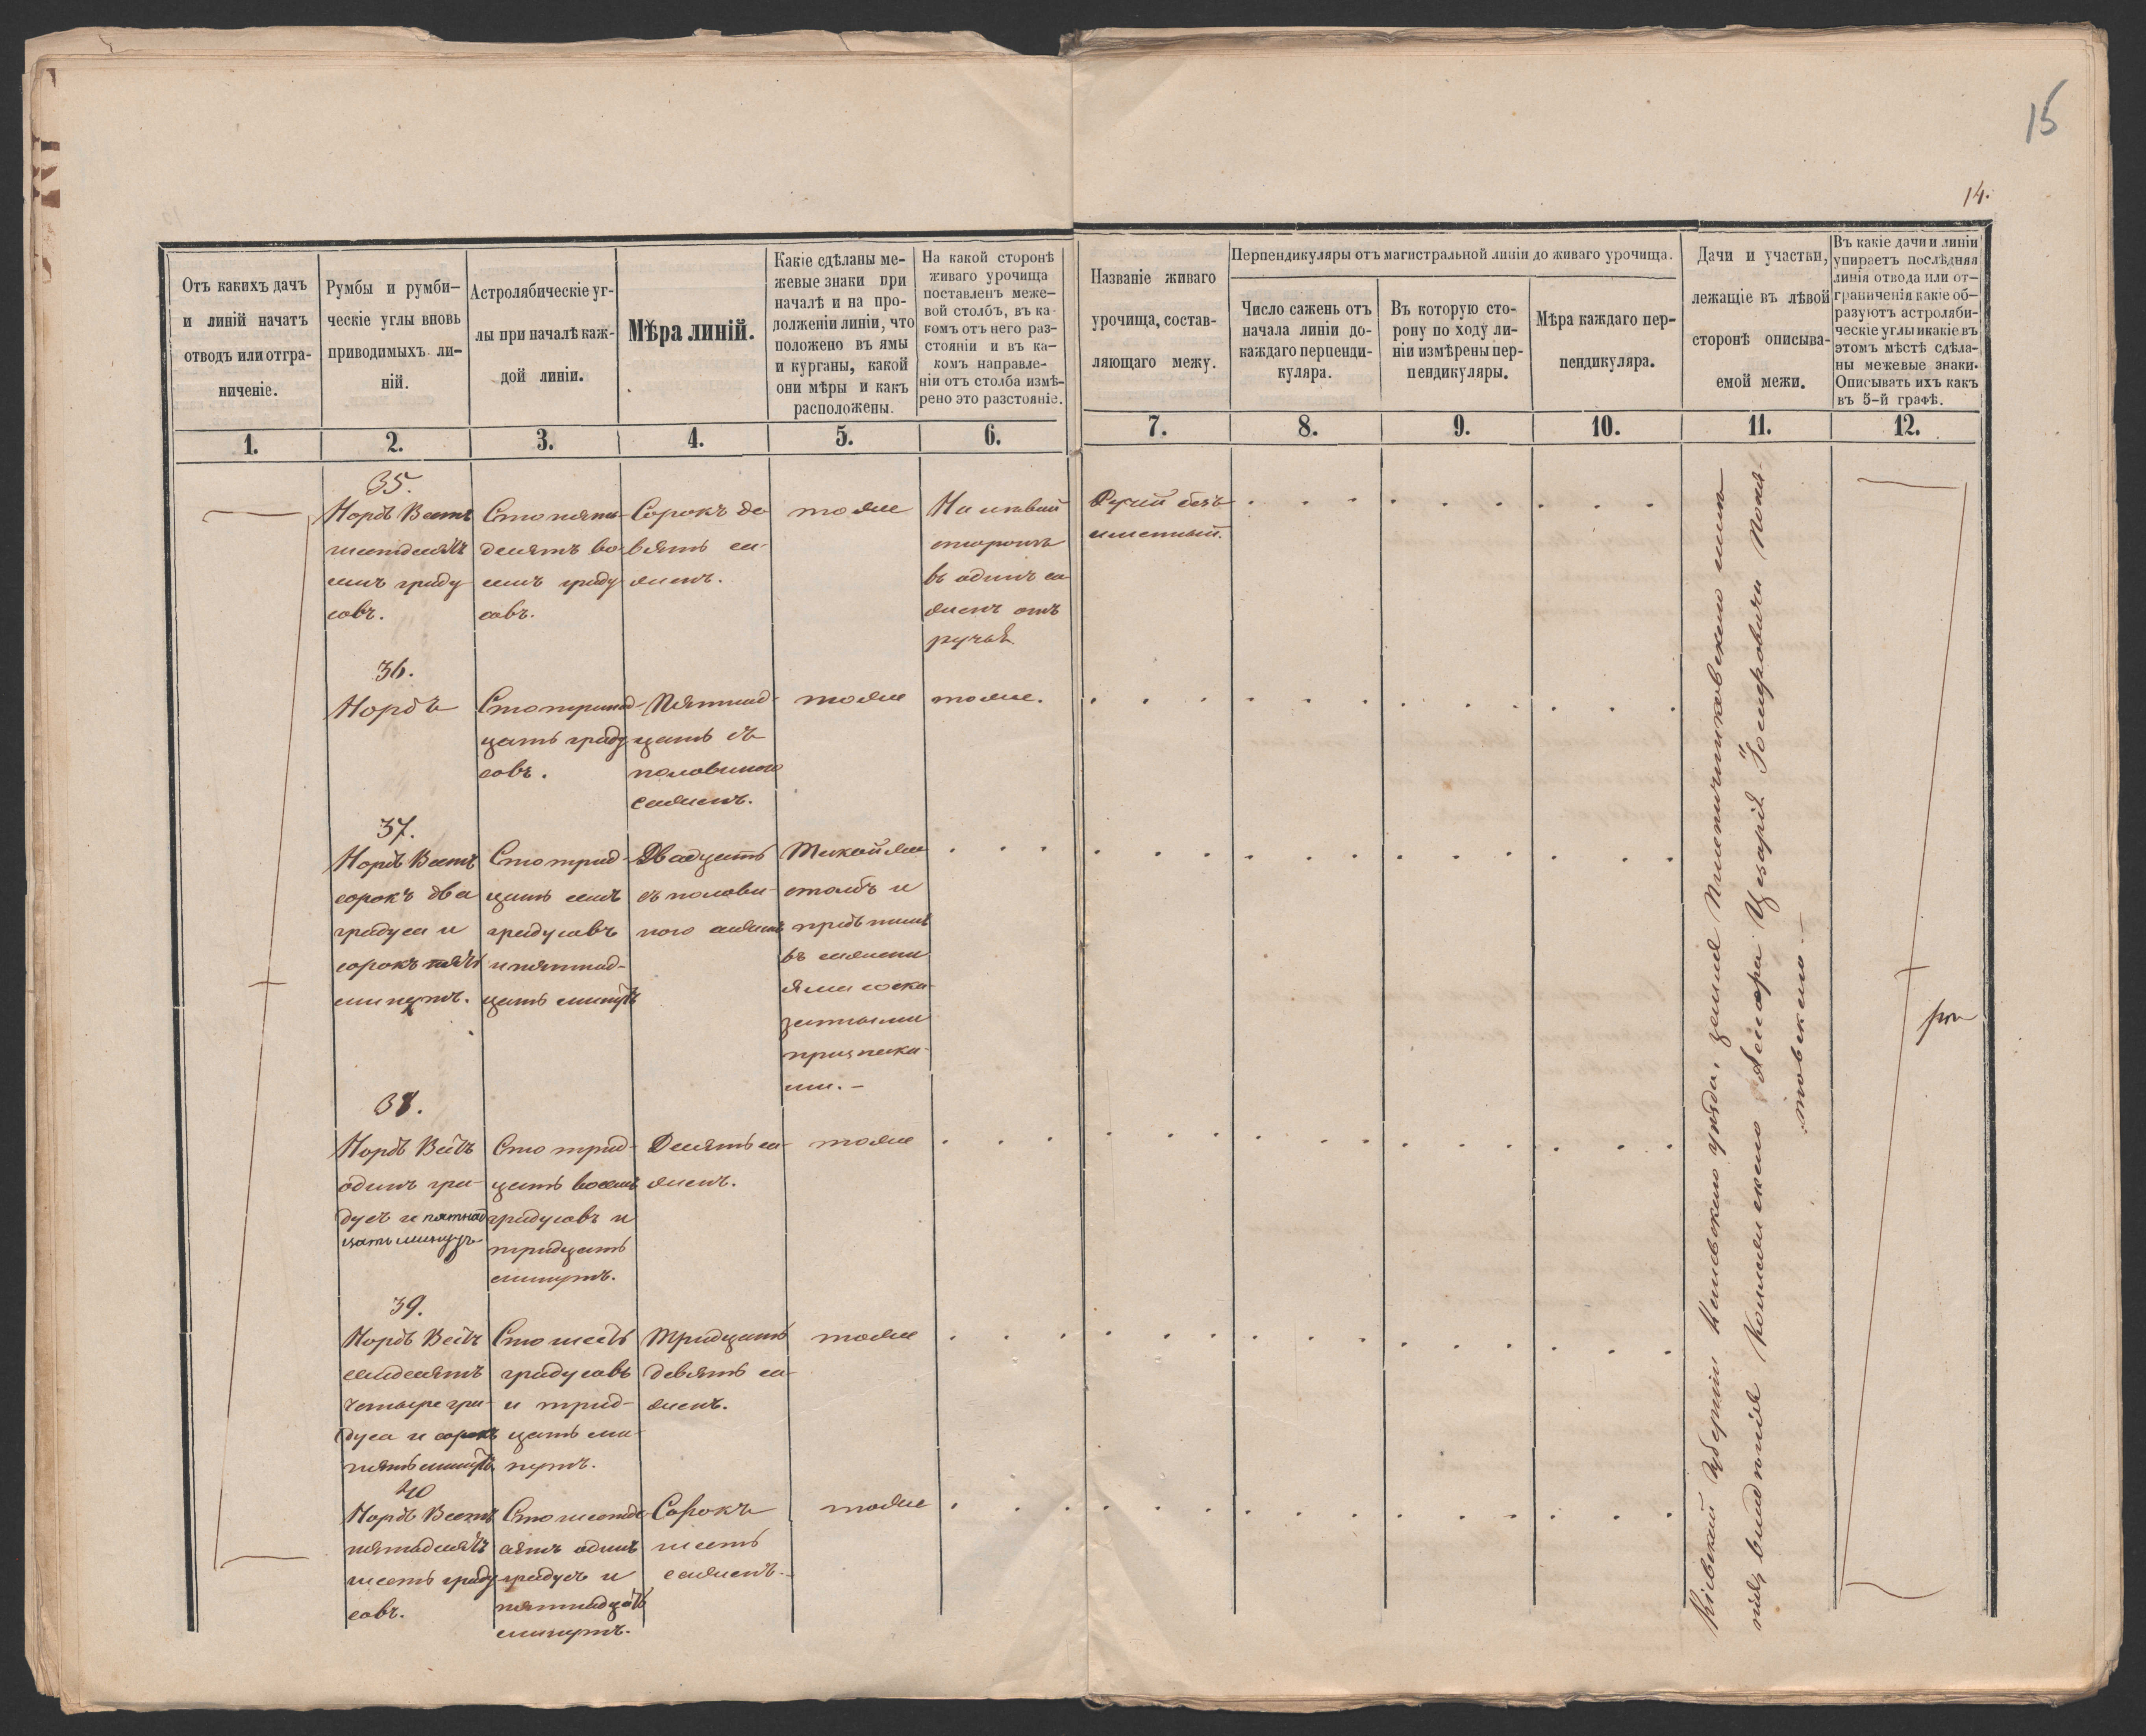 15
14.
Отъ какихъ дачъ
и линій начатъ
отводъ или отгра-
ниченіе.
Румбы и румби-
ческіе углы вновь
приводимыхъ ли-
ній.
Астролябическіе уг-
лы при началѣ каж-
дой линіи.
Мѣра линій.
Какіе сдѣланы ме-
жевые знаки при
началѣ и на про-
долженіи линіи, что
положено въ ямы
и курганы, какой
они мѣры и какъ
расположены.
На какой сторонѣ
живаго урочища
поставленъ меже-
вой столбъ, въ ка-
комъ отъ него раз-
стояніи и въ ка-
комъ направле-
ніи отъ столба измѣ-
рено это разстояніе.
Названіе живаго
урочища, состав-
ляющаго межу.
Перпендикуляры отъ магистральной линіи до живаго урочища.
Число сажень отъ
начала линіи до-
каждаго перпенди-
куляра.
Въ которую сто-
рону по ходу ли-
ніи измѣрены пер-
пендикуляры.
Мѣра каждаго пер-
пендикуляра.
Дачи и участки,
лежащіе въ лѣвой
сторонѣ описыва-
емой межи.
Въ какіе дачи и линіи
упираетъ послѣдняя
линія отвода или от-
граниченія какіе об-
разуютъ астроляби-
ческіе углы и какіе въ
этомъ мѣстѣ сдѣла-
ны межевые знаки.
Описывать ихъ какъ
въ 5-й графѣ.
1. 2. 3. 4. 5. 6. 7. 8. 9. 10. 11. 12.
35.
Нордъ Вестъ
шестдесятъ
семь граду
совъ.
Сто пять-
десятъ во-
семь граду
совъ.
Сорокъ де
вять са-
женъ.
тоже
На лѣвой
сторонѣ
въ одинъ са
женъ отъ
ручья.
Ручей безъ-
именный.
36.
Нордъ
Сто тринад-
цать граду
совъ.
Пятнад-
цать съ
половиною
саженъ.
тоже
тоже.
37.
Нордъ Вестъ
сорокъ два
градуса и
сорокъ пять
минутъ.
Сто трид-
цать семь
градусовъ
и пятнад-
цать минутъ
Двадцать
съ полови-
ною саженъ
Такой же
столбъ и
предъ нимъ
въ сажени
яма со ска-
занными
признака-
ми. -
38.
Нордъ Вестъ
одинъ гра-
дусъ и пятнад
цать минутъ
Сто трид-
цать восемь
градусовъ и
тридцать
минутъ.
Десять са-
женъ.
тоже
39.
Нордъ Вестъ
семдесятъ
четыре гра-
дуса и сорокъ
пять минутъ.
Сто шесть
градусовъ
и трид-
цать ми-
нутъ.
Тридцать
девять са-
женъ.
тоже
40
Нордъ Вестъ
пятдесятъ
шесть граду-
совъ.
Сто шестде
сятъ одинъ
градусъ и
пятнадцать
минутъ.
Сорокъ
шесть
саженъ.
тоже
Кіевской губерніи Каневскаго уѣзда, земля Пшеничниковскаго имѣ
нія, владѣнія Цезарія Іосифовича Поня-
товскаго. -